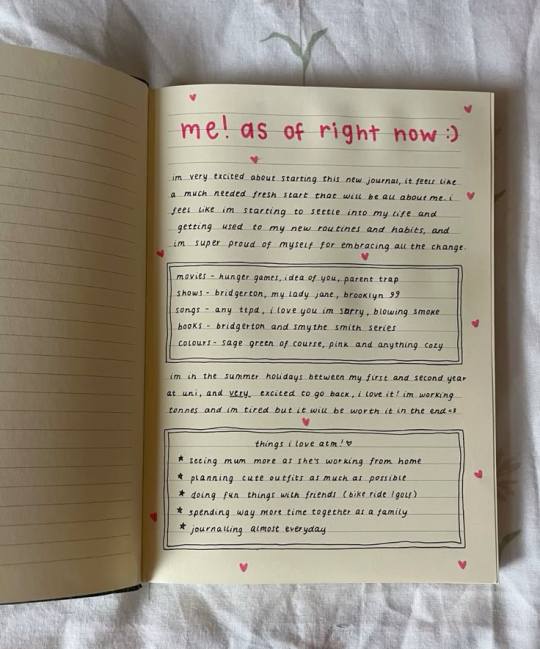 me! as of right now :)
im very excited about starting this new journal, it feels like
a much needed fresh start that will be all about me. i
feel like im starting to settle into my life and
getting used to my new routines and habits, and
im super proud of myself for embracing all the change.
movies - hunger games, idea of you, parent trap
shows - bridgerton, my lady jane, brooklyn 99
songs - any ttpd, i love you im sorry, blowing smoke
books - bridgerton and smythe smith series
colours - sage green of course, pink and anything cozy
im in the summer holidays between my first and second year
at uni, and very excited to go back, i love it! im working
tonnes and im tired but it will be worth it in the end <3
things i love atm! ♡
★ seeing mum more as she's working from home
★ planning cute outfits as much as possible
★ doing fun things with friends (bike ride / golf)
★ spending way more time together as a family
★ journalling almost everyday